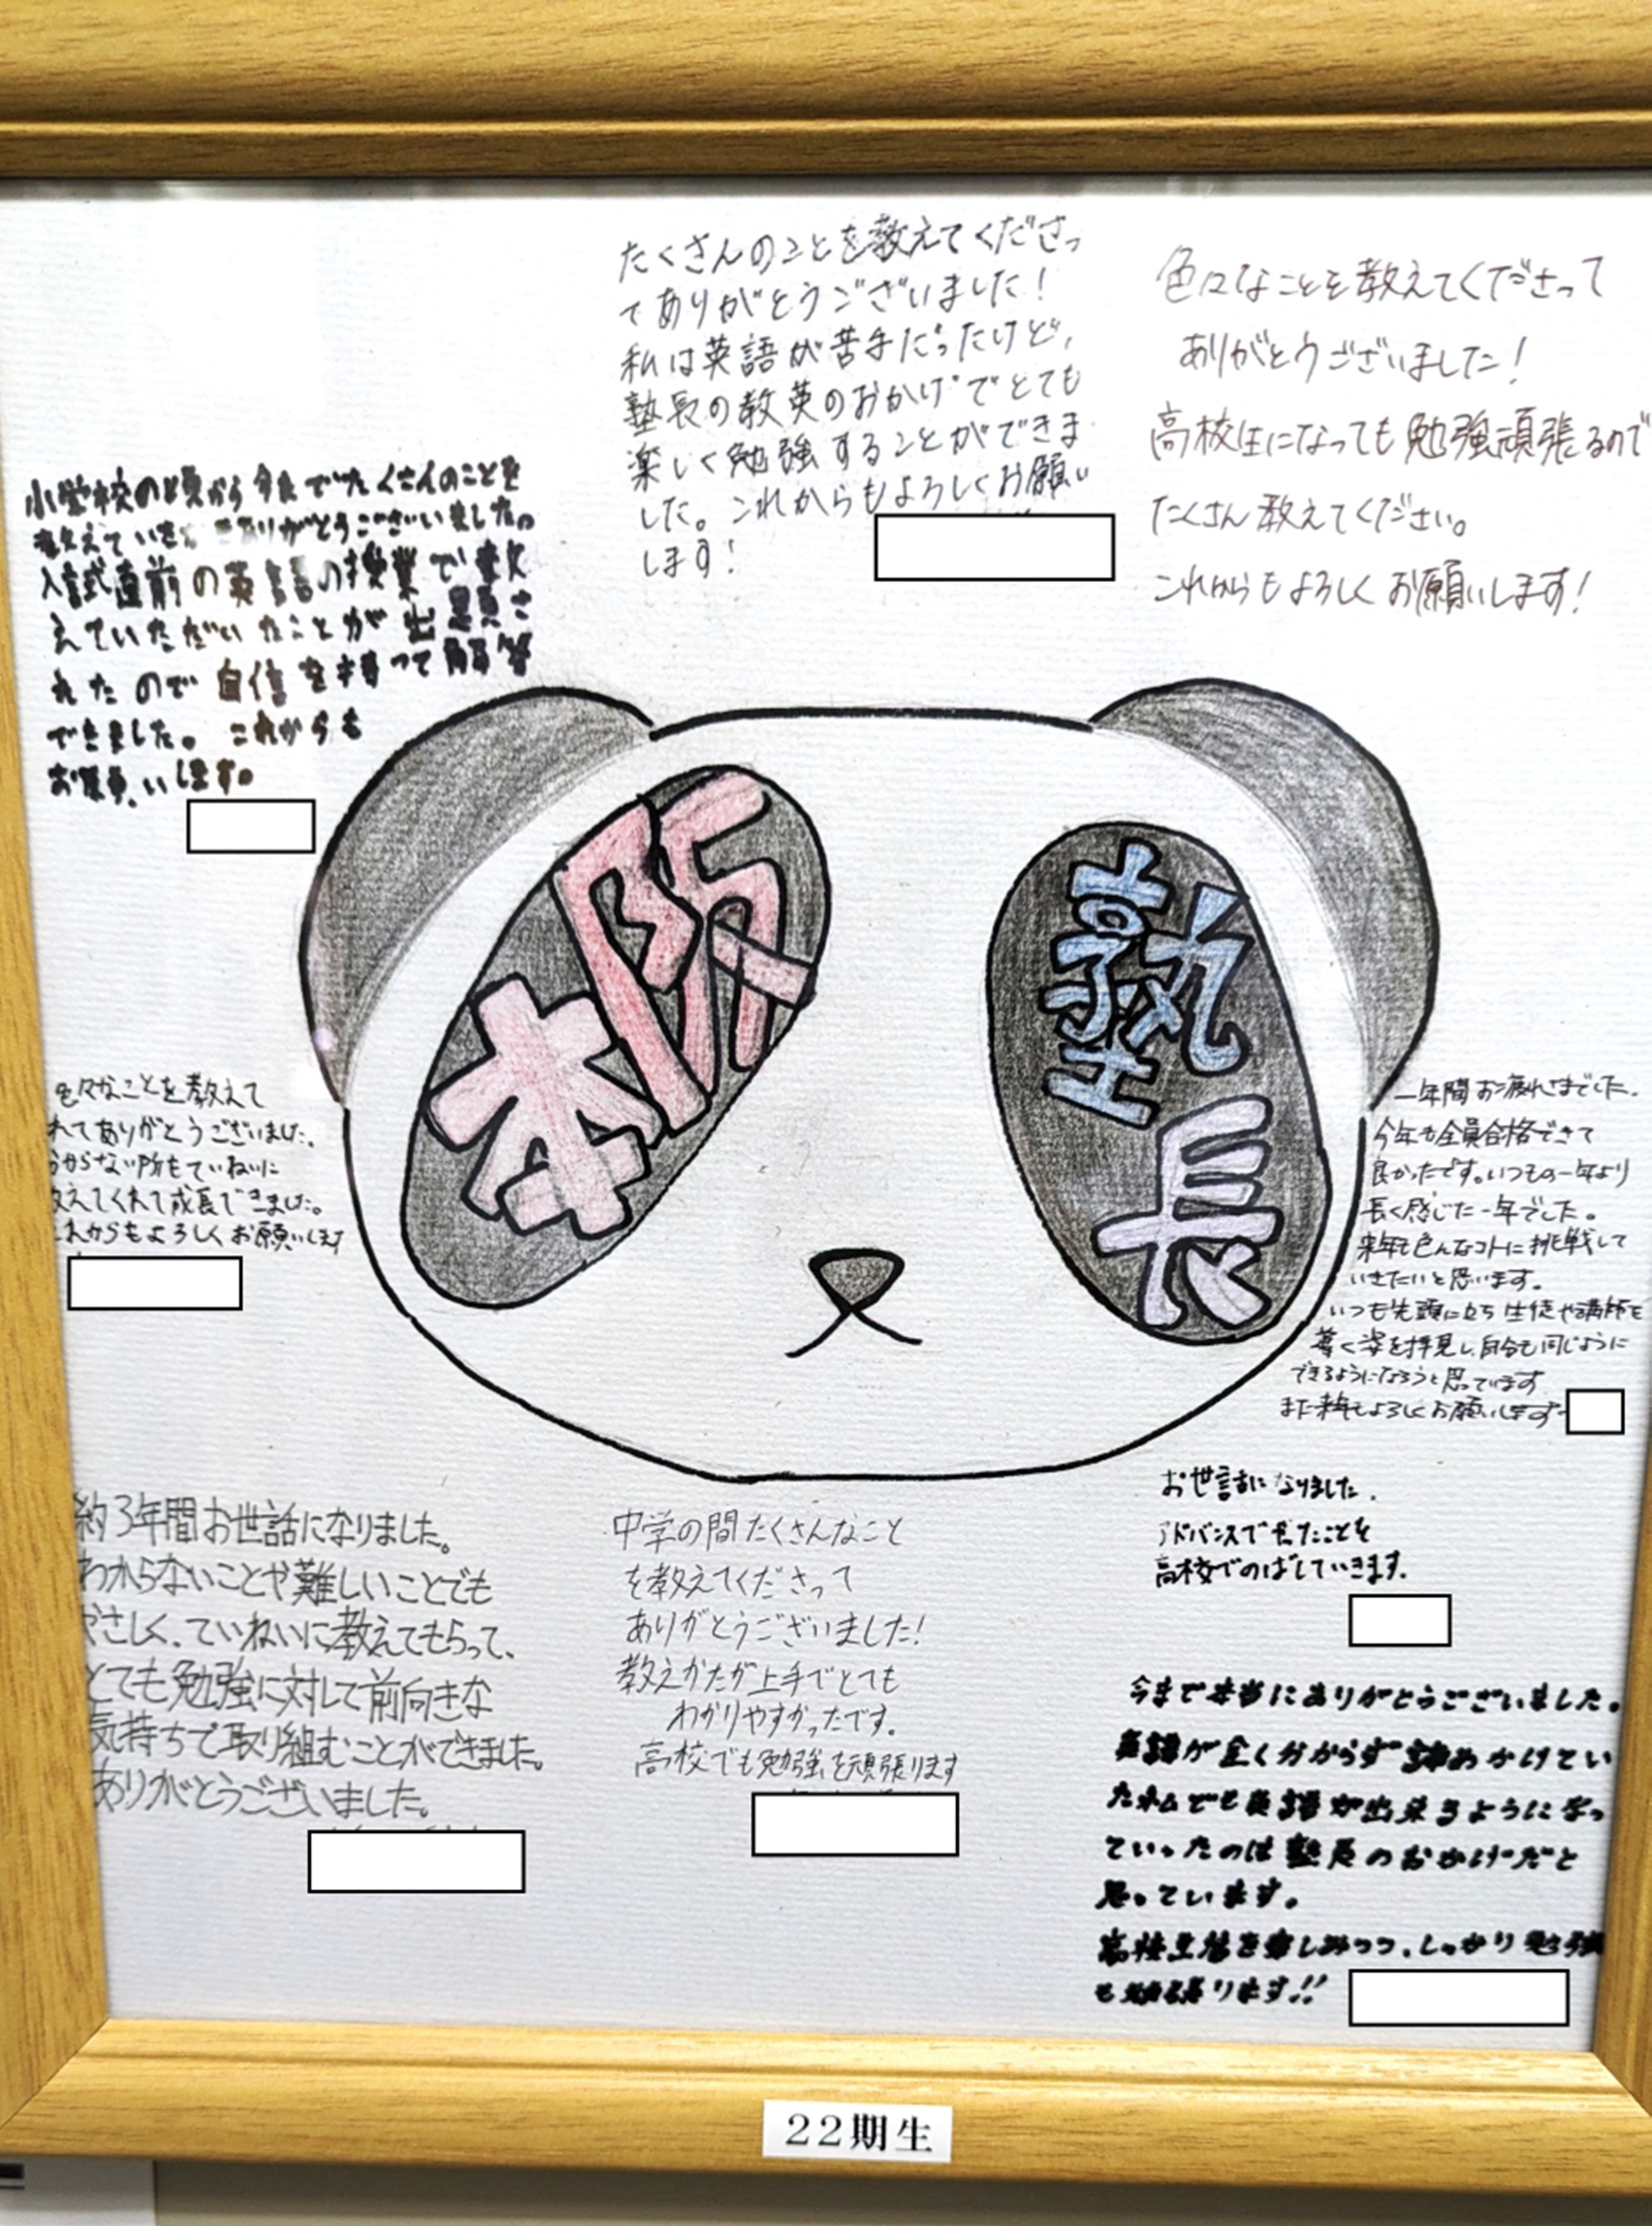 たくさんのことを教えてくださっ
てありがとうございました！
私は英語が苦手だったけど，
塾長の教英のおかげでとても
楽しく勉強することができま
した。これからもよろしくお願い
します！
色々なことを教えてくださって
ありがとうございました！
高校生になっても勉強頑張るので
たくさん教えてください。
これからもよろしくお願いします！
小学校の頃から今までたくさんのことを
教えていた ありがとうございました。
入試直前の英語の授業で教
えていただいたことが出題さ
れたので自信を持って解答
できました。これからも
お願いします。
阪本
塾長
色々なことを教えて
れてありがとうございました。
からない所もていねいに
教えてくれて成長できました。
これからもよろしくお願いします
一年間お疲れさまでした。
今年も全員合格できて
良かったです。いつもの一年より
長く感じた一年でした。
来年も色んなコトに挑戦して
いきたいと思います。
いつも先頭に立ち生徒や講師を
導く姿を拝見し、自分も同じように
できるようになろうと思っています
また来年もよろしくお願いします
約3年間お世話になりました。
わからないことや難しいことでも
やさしく、ていねいに教えてもらって、
とても勉強に対して前向きな
気持ちで取り組むことができました。
ありがとうございました。
中学の間たくさんなこと
を教えてくださって
ありがとうございました！
教えかたが上手でとても
わかりやすかったです。
高校でも勉強を頑張ります
お世話になりました。
アドバンスで たことを
高校でのばしていきます。
今まで本当にありがとうございました。
英語が全く分からず諦めかけてい
た私でも英語が出来るようになっ
ていったのは塾長のおかげだと
思っています。
高校生活を楽しみつつ、しっかり勉強
も頑張ります!!
22期生